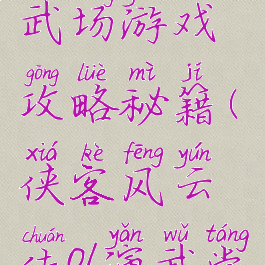 武场游戏
gōng lüè mì jí
攻略秘籍(
xiá kè fēng yún
侠客风云
chuán yǎn wǔ táng
传01演武堂